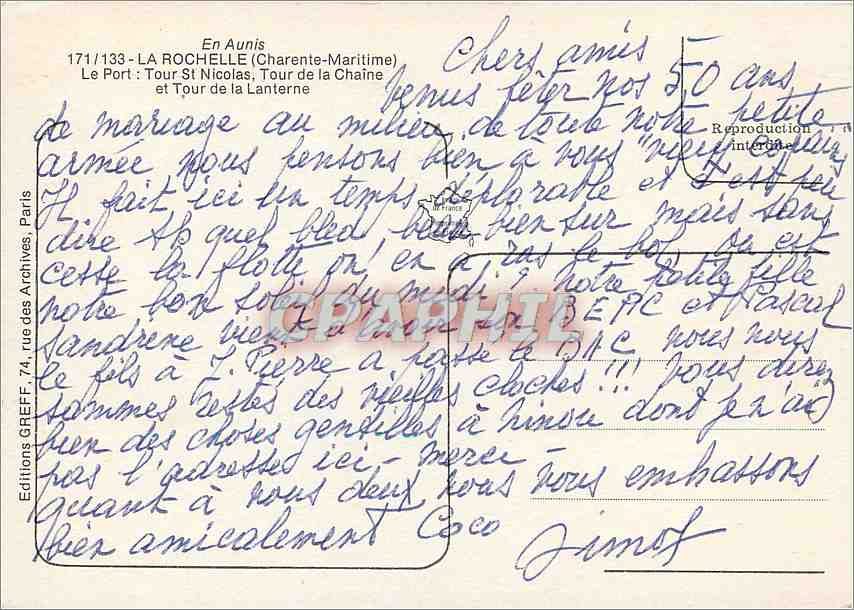 En Aunis
171/133 - LA ROCHELLE (Charente-Maritime)
Le Port : Tour St Nicolas, Tour de la Chaîne
et Tour de la Lanterne
Editions GREFF, 74, rue des Archives, Paris
Reproduction
interdite
de France
CPAPHIL
Chers amis
Venus fêter nos 50 ans
de mariage au milieu de toute notre petite
armée nous pensons bien à vous
Il fait ici un temps déplorable et c'est peu
dire quel bled, beau bien sur mais sans
cesse la flotte on en a ras le bol, ou est
notre bon soleil du midi? notre petite fille
Sandrine vient d'avoir son BEPC et Pascal
le fils à J. Pierre a passé le BAC nous nous
sommes restés des vieilles cloches!!! vous direz
bien des choses gentilles à Ninou dont je n'ai
pas l'adresses ici - merci -
quant à vous deux nous vous embrassons
bien amicalement Coco